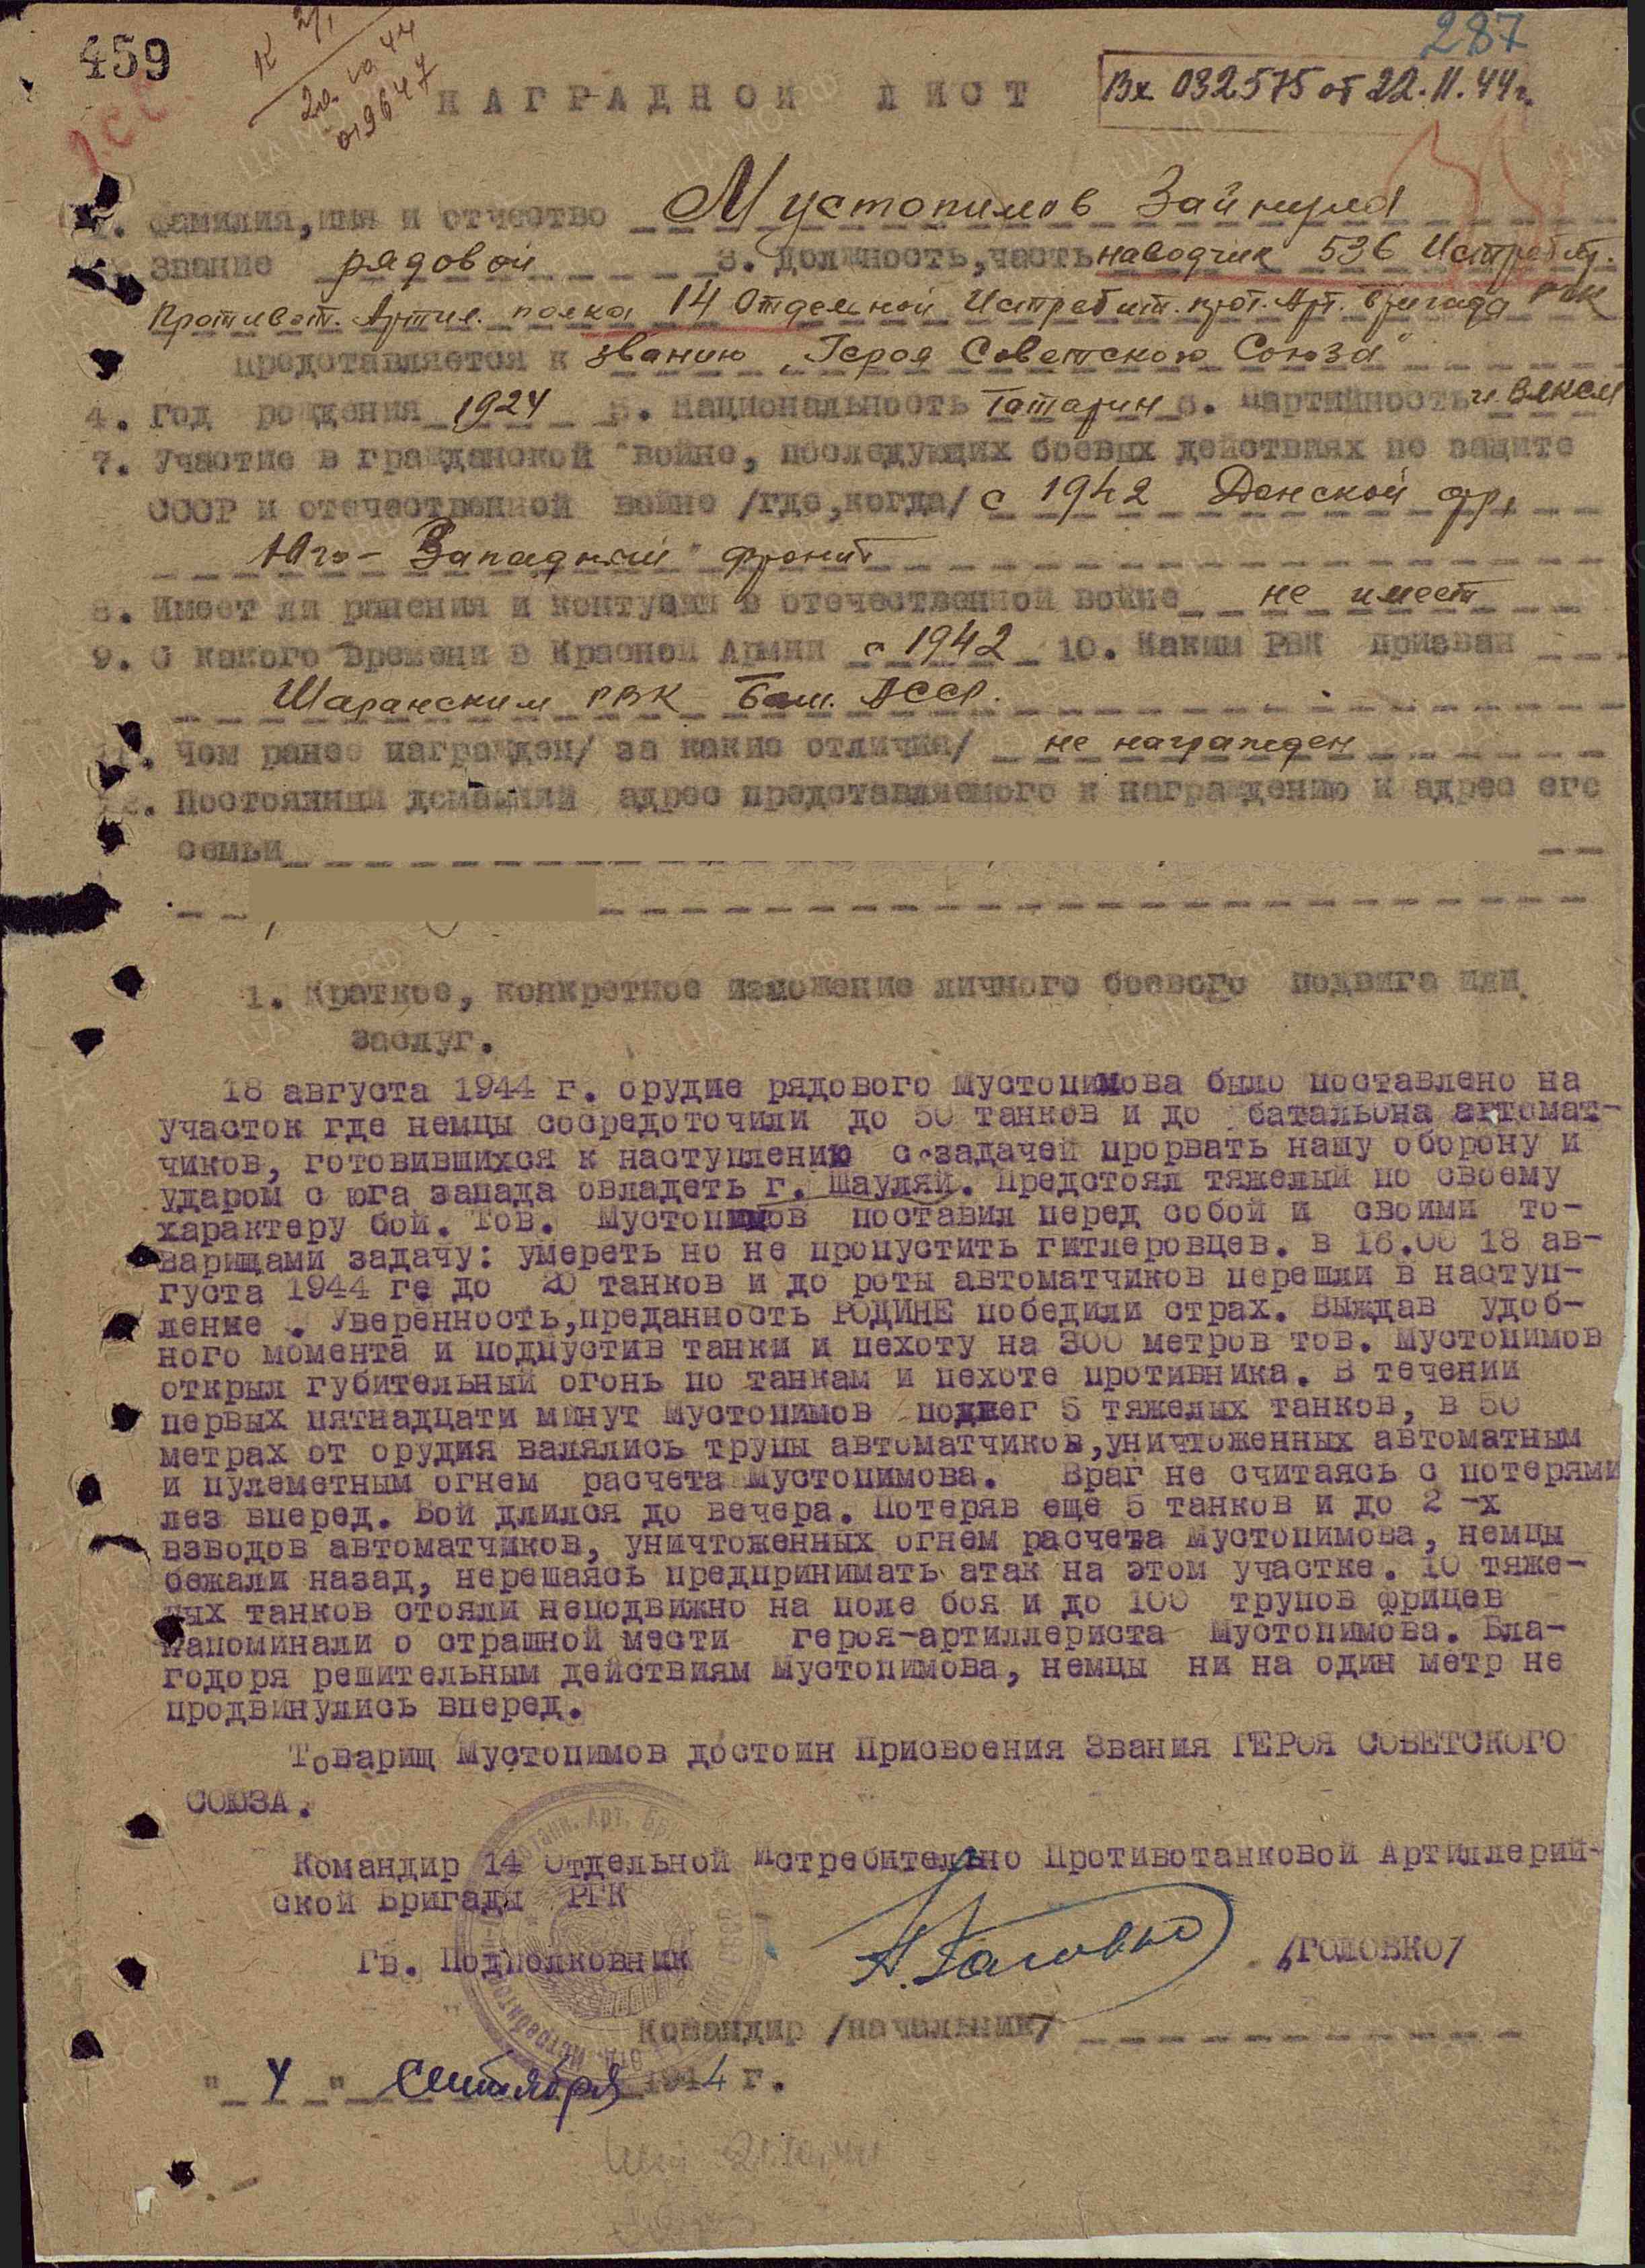 459
287
Вх 032575 от 22.11.44г.
НАГРАДНОЙ ЛИСТ
1. Фамилия, имя и отчество Мустопимов Зайнула
Звание рядовой 3. Должность, часть наводчик 536 Истребит.
Противот. Артил. полка 14 Отдельной Истребит. прот. Арт. Бригада РГК
представляется к званию "Героя Советского Союза"
4. Год рождения 1924 5. Национальность Татарин 6. Партийность чл ВЛКСМ
7. Участие в гражданской войне, последующих боевых действиях по защите
СССР и отечественной войне /где, когда/ с 1942 Донской фр,
Юго-Западный фронт
8. Имеет ли ранения и контузии в отечественной войне не имеет
9. С какого времени в Красной Армии с 1942 10. Каким РВК призван
Шаранским РВК Баш. АССР.
11. Чем ранее награжден/ за какие отличия/ не награжден
12. Постоянный домашний адрес представляемого к награждению и адрес его
семьи
1. Краткое, конкретное изложение личного боевого подвига или
заслуг.
18 августа 1944 г. орудие рядового Мустопимова было поставлено на
участок где немцы сосредоточили до 50 танков и до батальона автомат-
чиков, готовившихся к наступлению с задачей прорвать нашу оборону и
ударом с юга запада овладеть г. Шауляй. Предстоял тяжелый по своему
характеру бой. Тов. Мустопимов поставил перед собой и своими то-
варищами задачу: умереть но не пропустить гитлеровцев. В 16.00 18 ав-
густа 1944 ге до 20 танков и до роты автоматчиков перешли в наступ-
ление . Уверенность,преданность РОДИНЕ победили страх. Выждав удоб-
ного момента и подпустив танки и пехоту на 300 метров тов. Мустопимов
открыл губительный огонь по танкам и пехоте противника. В течении
первых пятнадцати минут Мустопимов поджег 5 тяжелых танков, в 50
метрах от орудия валялись трупы автоматчиков,уничтоженных автоматным
и пулеметным огнем расчета Мустопимова. Враг не считаясь с потерями
лез вперед. Бой длился до вечера. Потеряв еще 5 танков и до 2 -х
взводов автоматчиков, уничтоженных огнем расчета Мустопимова, немцы
бежали назад, нерешаясь предпринимать атак на этом участке. 10 тяже-
лых танков стояли неподвижно на поле боя и до 100 трупов фрицев
напоминали о страшной мести героя-артиллериста Мустопимова. Бла-
годоря решительным действиям Мустопимова, немцы ни на один метр не
продвинулись вперед.
Товарищ Мустопимов достоин Присвоения Звания ГЕРОЯ СОВЕТСКОГО
СОЮЗА.
Командир 14 Отдельной Истребительно Противотанковой Артиллерий-
ской Бригады РГК
Гв. Подполковник /ГОЛОВКО/
Командир /начальник/
"4" Сентября 1944 г.